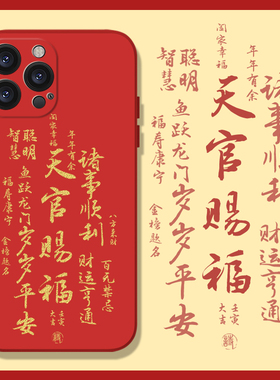 阖家幸福
年年有余
聪明
智慧
鱼跃龙门
岁岁平安
福寿康宁
金榜题名
天官赐福
诸事顺利
财运亨通
八方来财
百无禁忌
壬寅
大吉
阖家幸福
年年有余
聪明
智慧
鱼跃龙门
岁岁平安
福寿康宁
金榜题名
天官赐福
诸事顺利
财运亨通
壬寅
大吉